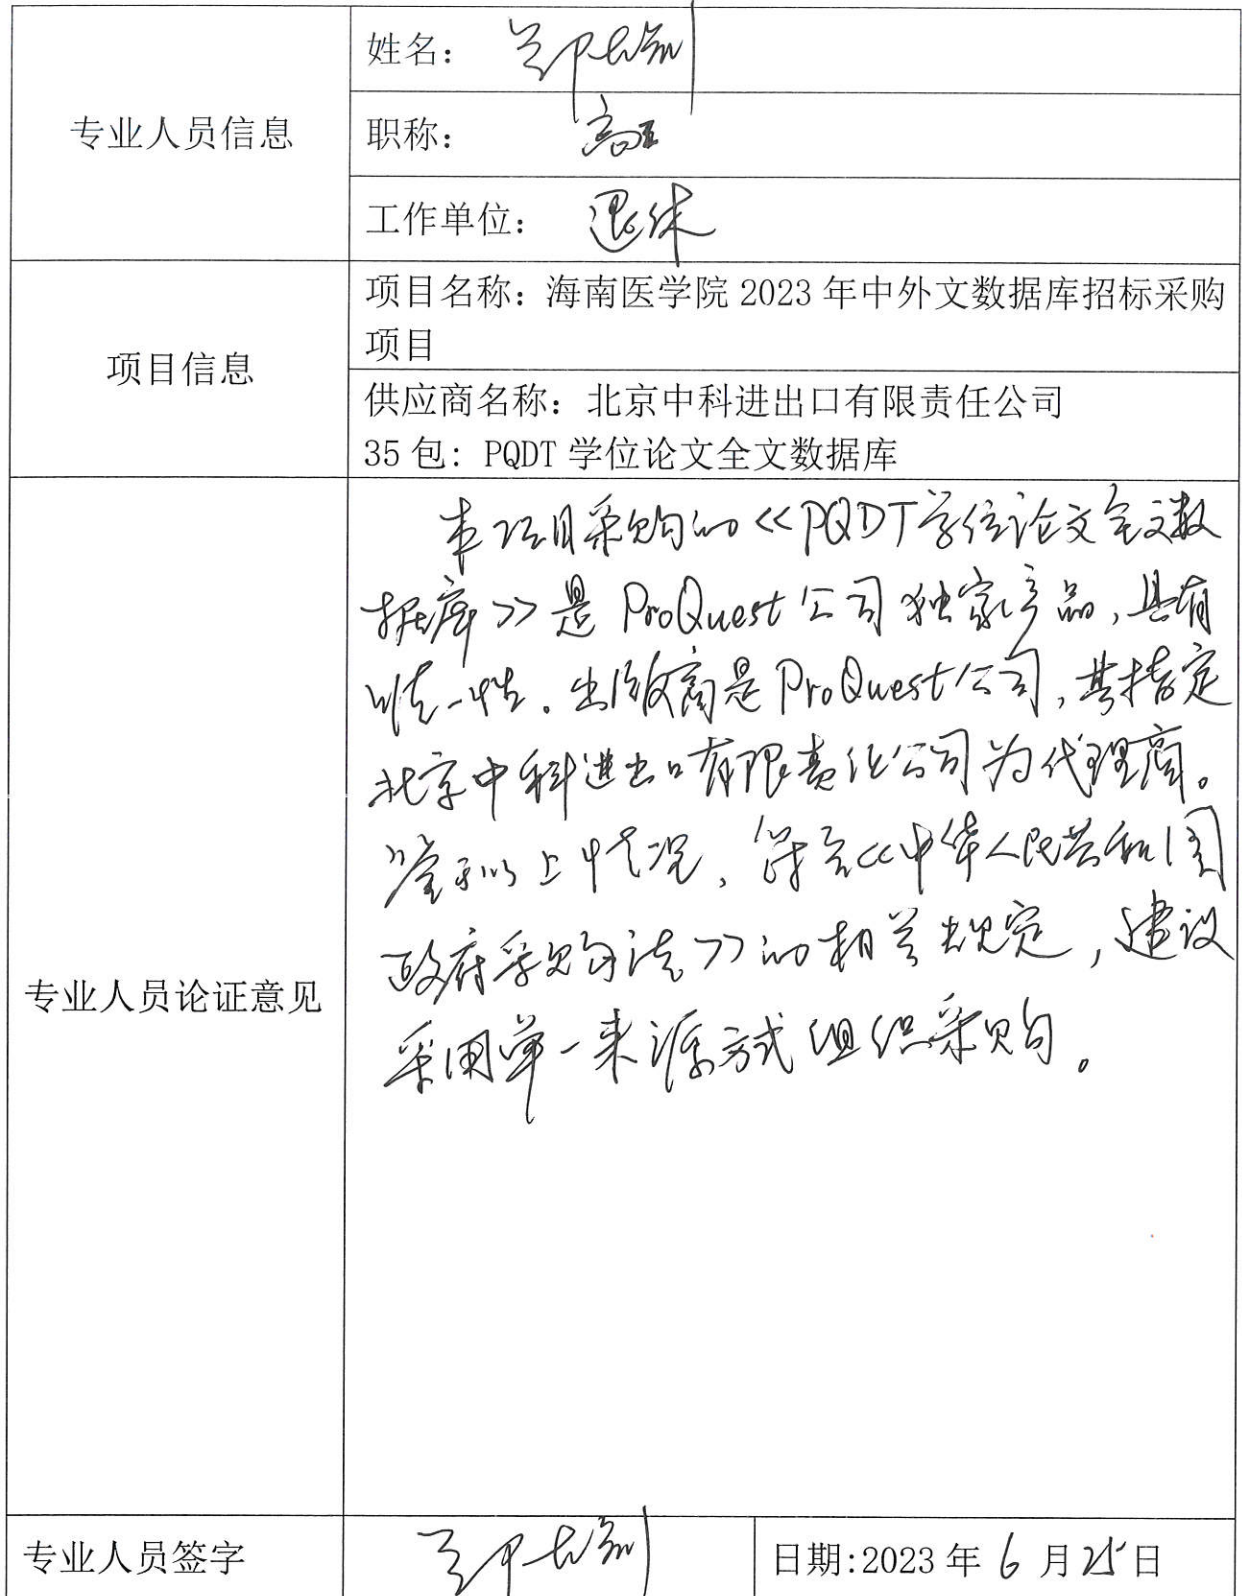 专业人员信息
姓名：郑
职称：高工
工作单位：退休
项目信息
项目名称：海南医学院 2023 年中外文数据库招标采购
项目
供应商名称：北京中科进出口有限责任公司
35 包：PQDT 学位论文全文数据库
专业人员论证意见
本项目采购的《PQDT学位论文全文数
据库》是 ProQuest 公司独家产品，具有
唯一性。出版商是ProQuest公司，其指定
北京中科进出口有限责任公司为代理商。
鉴于以上情况，符合《中华人民共和国
政府采购法》的相关规定，建议
采用单一来源方式组织采购。
专业人员签字
郑
日期:2023 年 6 月 25 日